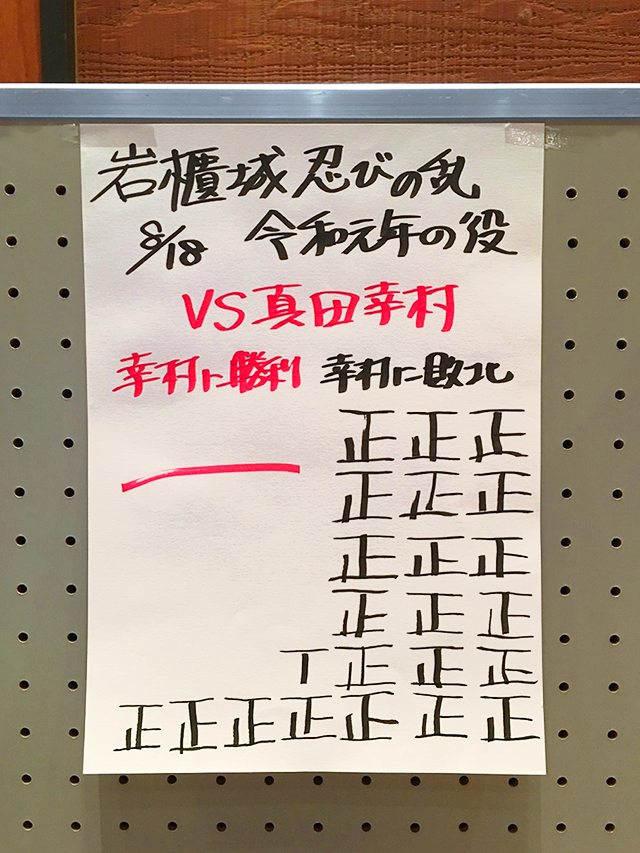 岩櫃城 忍びの乱
8/18 令和元年の役
VS真田幸村
幸村に勝利 幸村に敗北
正正正
一 正正正
正正正
正正正
丅正正正
正正正正正正正